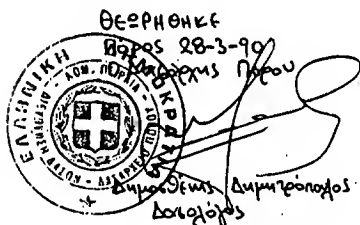 ΘΕΩΡΗΘΗΚΕ
Πόρος 28-3-90
Ο Δασάρχης Πόρου
ΕΛΛΗΝΙΚΗ ΔΗΜΟΚΡΑΤΙΑ
Δημοσθένης Δημητρόπουλος
Δασολόγος